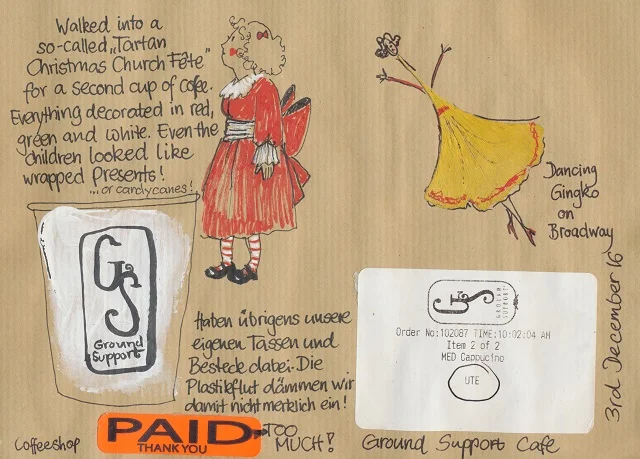 Walked into a
so-called „Tartan
Christmas Church Fête"
for a second cup of cofee.
Everything decorated in red,
green and white. Even the
children looked like
wrapped Presents!
...or candycanes!
Dancing
Gingko
on
Broadway
GS
Ground
Support
Haben übrigens unsere
eigenen Tassen und
Besteck dabei. Die
Plastikflut dämmen wir
damit nicht merklich ein!
GS
GROUND
SUPPORT
Order No:102087 TIME:10:02:04 AM
Item 2 of 2
MED Cappucino
UTE
3rd December 16
Coffeeshop
PAID
THANK YOU
TOO
MUCH!
Ground Support Cafe